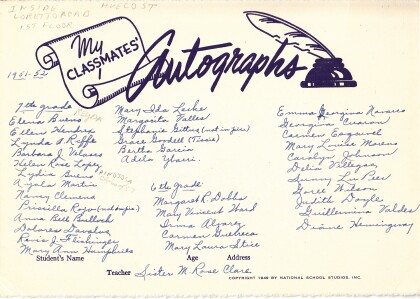 INSIDE
LORETTO ACAD
1ST FLOOR
HUECO ST
My
CLASSMATES'
Autographs
1951-52
7th grade
Elena Bueno
Eileen Hendrix
Lynda D. Riffe
Barbara J. Velases
Helen Rose Lopez
Lydia Bueno
Ayala Martin
Nancy Clemens
Priscilla Rojo (not in pic)
Anna Beth Bulloch
Dolores Davalos
Rosie J. Fleishinger
Mary Ann Humphries
Mary Ida Leche
Margarita Valles
Stephanie Gittens (not in pic)
Grace Goodell (Tissie)
Bertha Garcia
Adela Ybarri
6th grade
Margaret R. Dobbs
Mary Vincent Ward
Irma Algare
Carmen Gutierrez
Mary Laura Stire
Emma Georgina Navares
Georgina Curson
Carmen Esquivel
Mary Louise Moreno
Carolyn Johnson
Delia Villegas
Sunny Lin Peer
Goree Wilson
Judith Doyle
Guillermina Valdez
Diane Hemingway
Student's Name Age Address
Teacher Sister M Rose Clare
COPYRIGHT 1948 BY NATIONAL SCHOOL STUDIOS, INC.